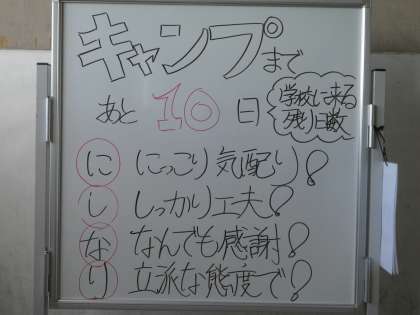 キャンプまで
あと 10 日
学校に来る
残り日数
に にっこり気配り!
し しっかり工夫!
な なんでも感謝!
り 立派な態度で!